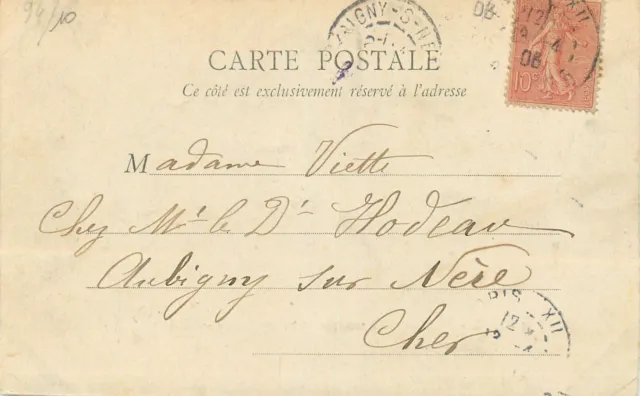 94/10
CARTE POSTALE
Ce côté est exclusivement réservé à l'adresse
10c
12
4
06
XII
06
IGNY-S-NE
Madame Viette
Chez Mr le Dr Hodeau
Aubigny sur Nère
Cher
PARIS XII
12